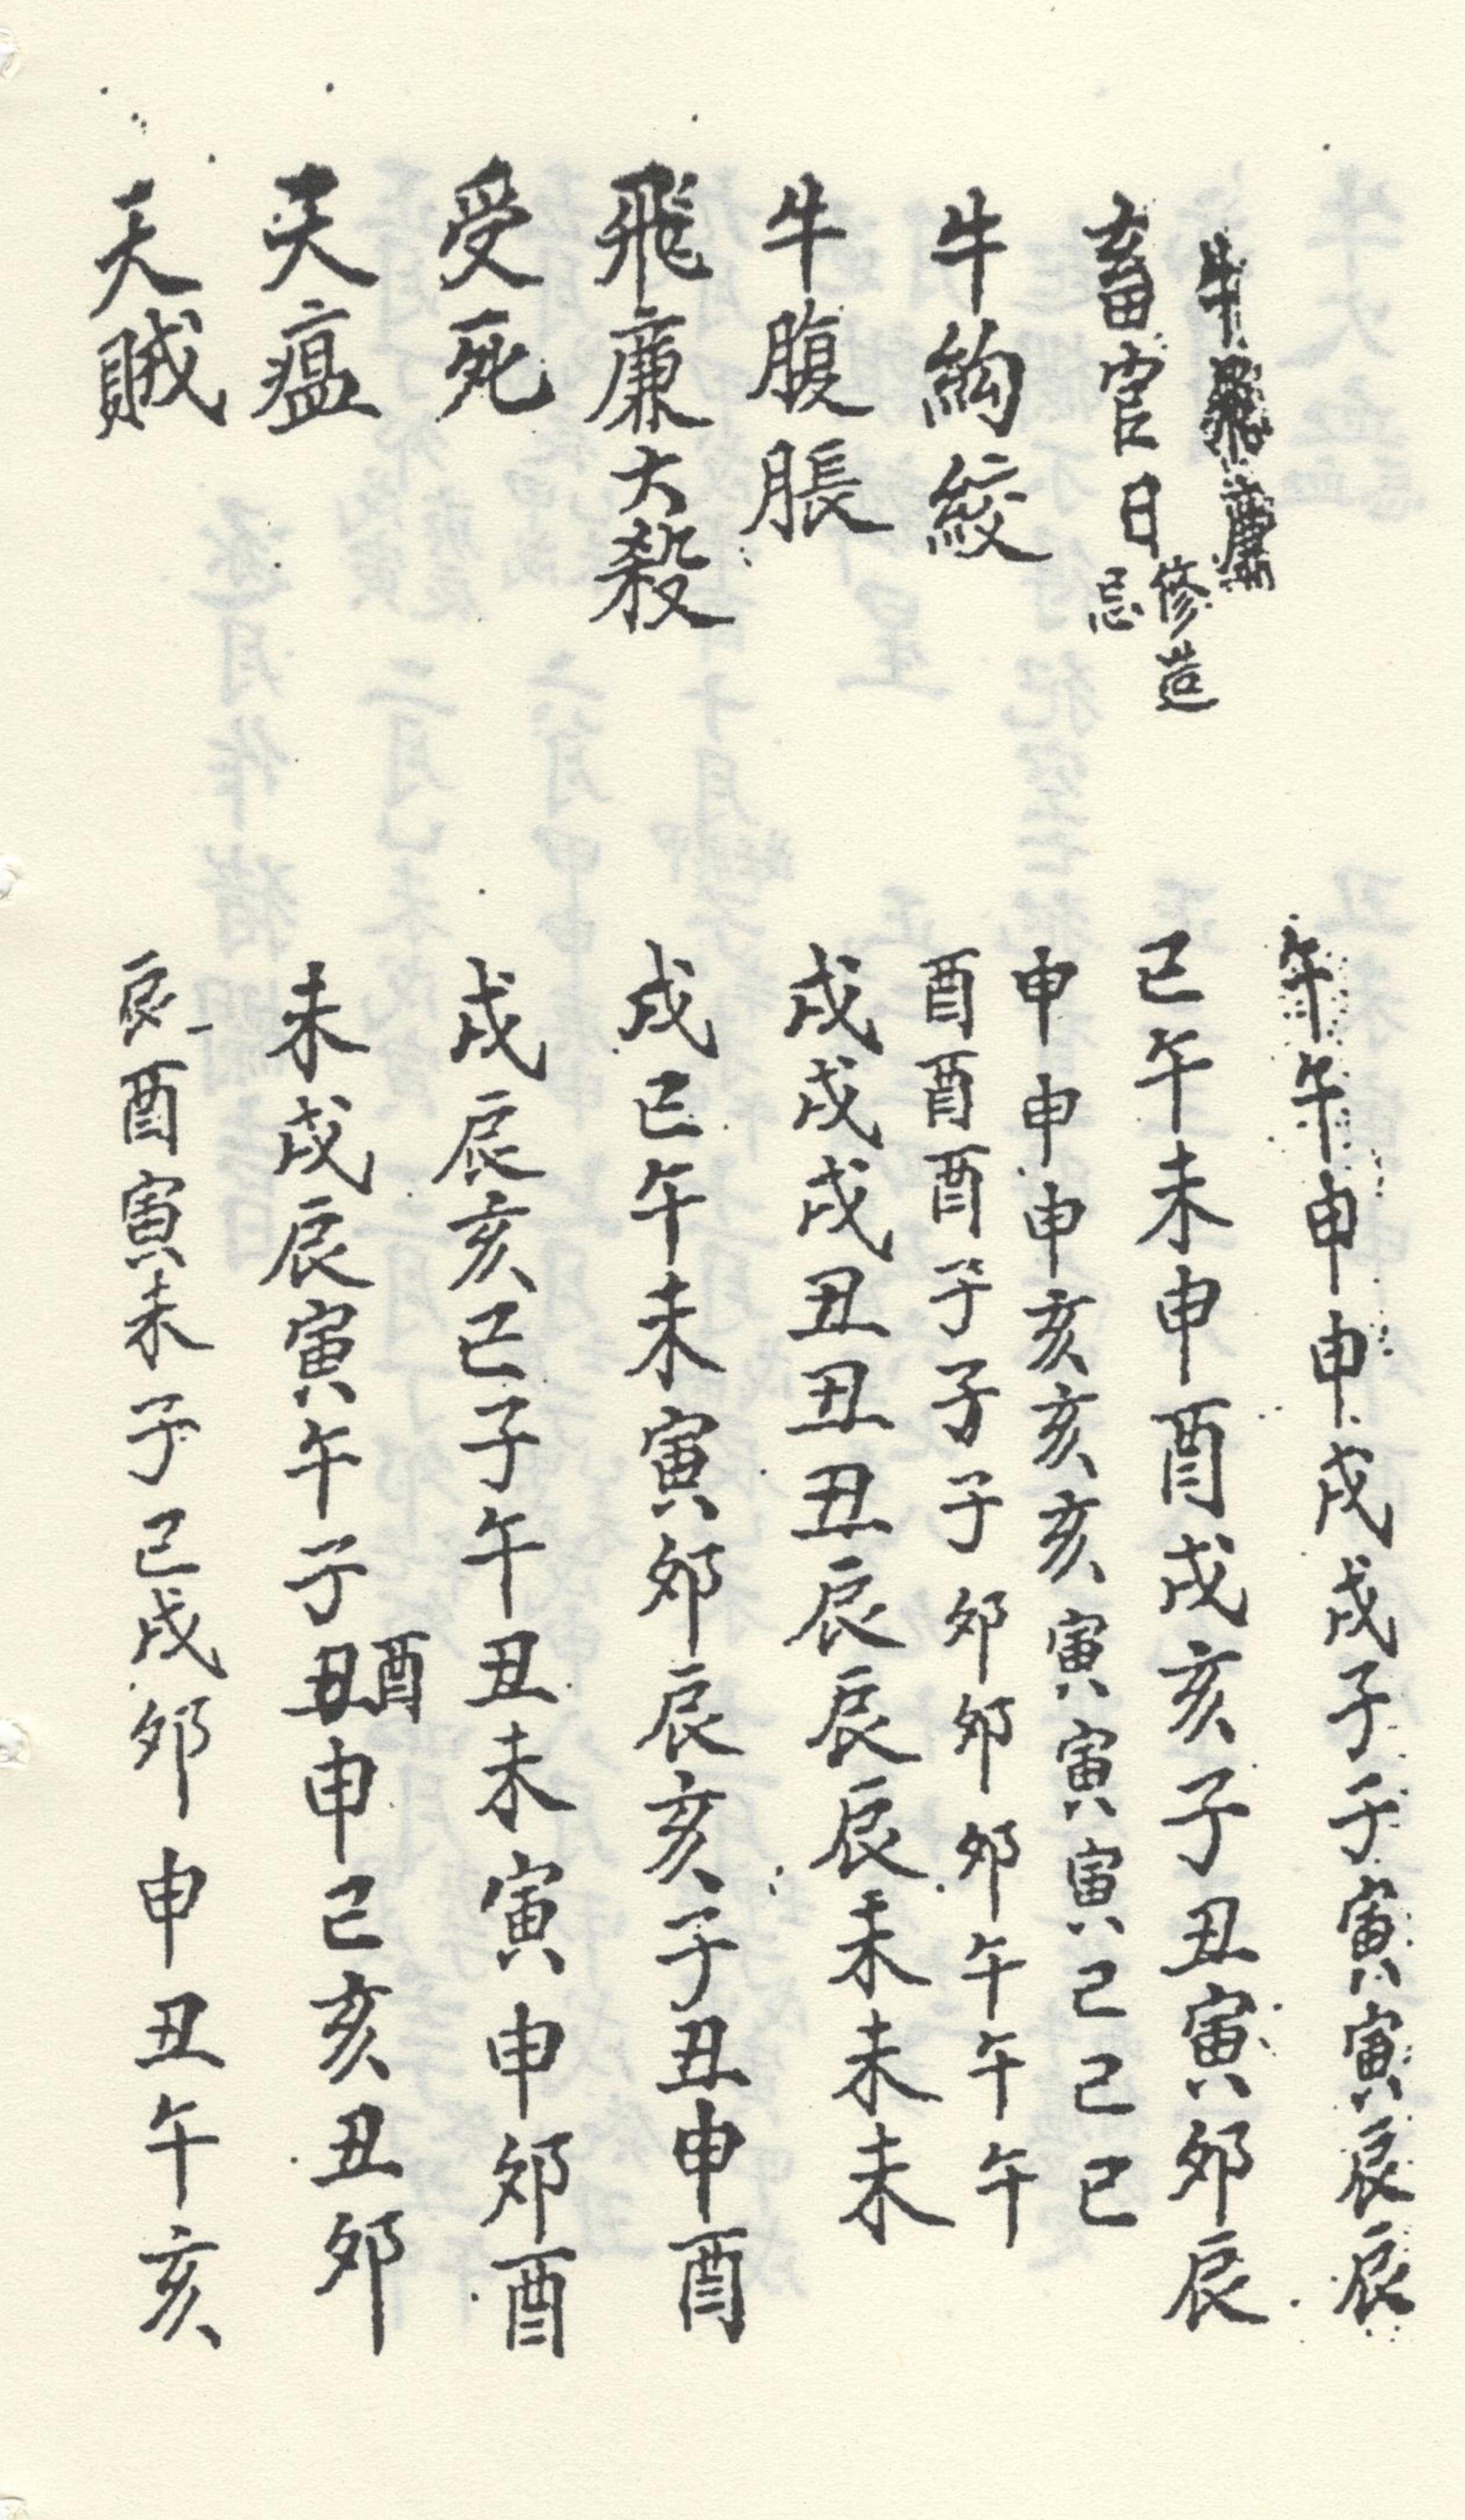 牛飛廉 午午申申戌戌子子寅寅辰辰
畜官日 修造忌 巳午未申酉戌亥子丑寅卯辰
牛鈎絞 申申申亥亥亥寅寅寅巳巳巳
酉酉酉子子子卯卯卯午午午
牛腹脹 戌戌戌丑丑丑辰辰辰未未未
飛廉大殺 戌巳午未寅卯辰亥子丑申酉
受死 戌辰亥巳子午丑未寅申卯酉
天瘟 未戌辰寅午子丑酉申巳亥丑卯
天賊 辰酉寅未子巳戌卯申丑午亥